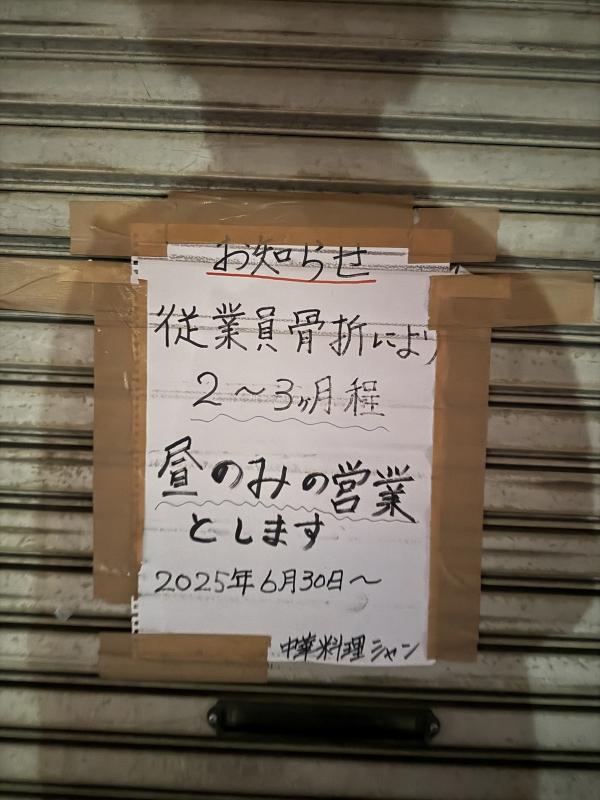 お知らせ
従業員骨折により
2〜3ヶ月程
昼のみの営業
とします
2025年6月30日〜
中華料理シャン